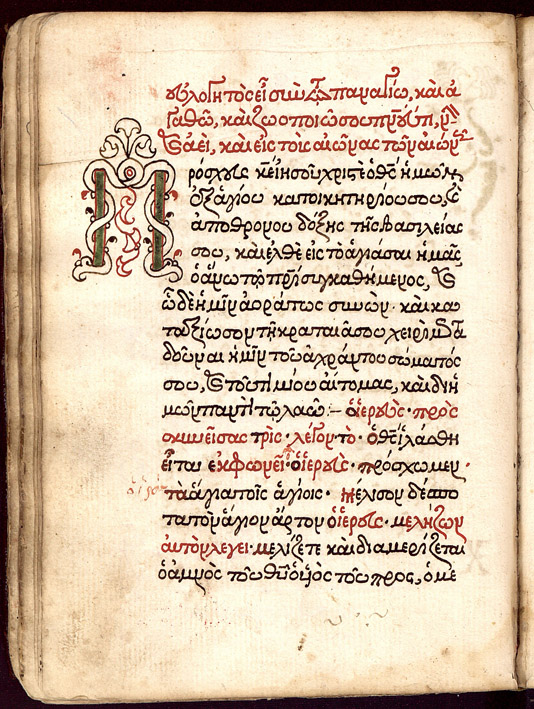 υλογητὸς εἶ σὺν τῷ παναγίῳ, καὶ ἀ
γαθῷ, καὶ ζωοποιῷ σου πνι, νῦν
κ ἀεὶ, καὶ εἰς τοὺς αἰῶνας τῶν αἰών
Πρόσχες κε ἰησοῦ χριστὲ ὁ θς ἡμῶν
ἐξ ἁγίου κατοικητηρίου σου, κ
ἀπὸ θρόνου δόξης τῆς βασιλείας
σου, καὶ ἐλθὲ εἰς τὸ ἁγιάσαι ἡμᾶς
ὁ ἄνω τῷ πρὶ συγκαθήμενος, κ
ὧδε ἡμῖν ἀοράτως συνών· καὶ κα
ταξίωσον τῇ κραταιᾷ σου χειρὶ μετα
δοῦναι ἡμῖν τοῦ ἀχράντου σώματός
σου, κ τοῦ τιμίου αἵματος, καὶ δι ἡ
μῶν παντὶ τῷ λαῷ :– ὁ ἱερεὺς· πρὸς
σκυνείσας τρὶς· λέγον τὸ· ὁ θς ἱλάσθη
εἶται ἐκφωνεῖ· ὁ ἱερεὺς· πρόσχωμεν·
τὰ ἅγια τοῖς ἁγίοις· Μέλισον δέσπο
τα τὸν ἅγιον ἄρτον ὁ ἱερεὺς· μελήζων
αὐτὸν λέγει· μελίζετε καὶ διαμερίζεται
ὁ ἀμνὸς τοῦ θῦ ὁ υἱὸς τοῦ προς, ὁ με